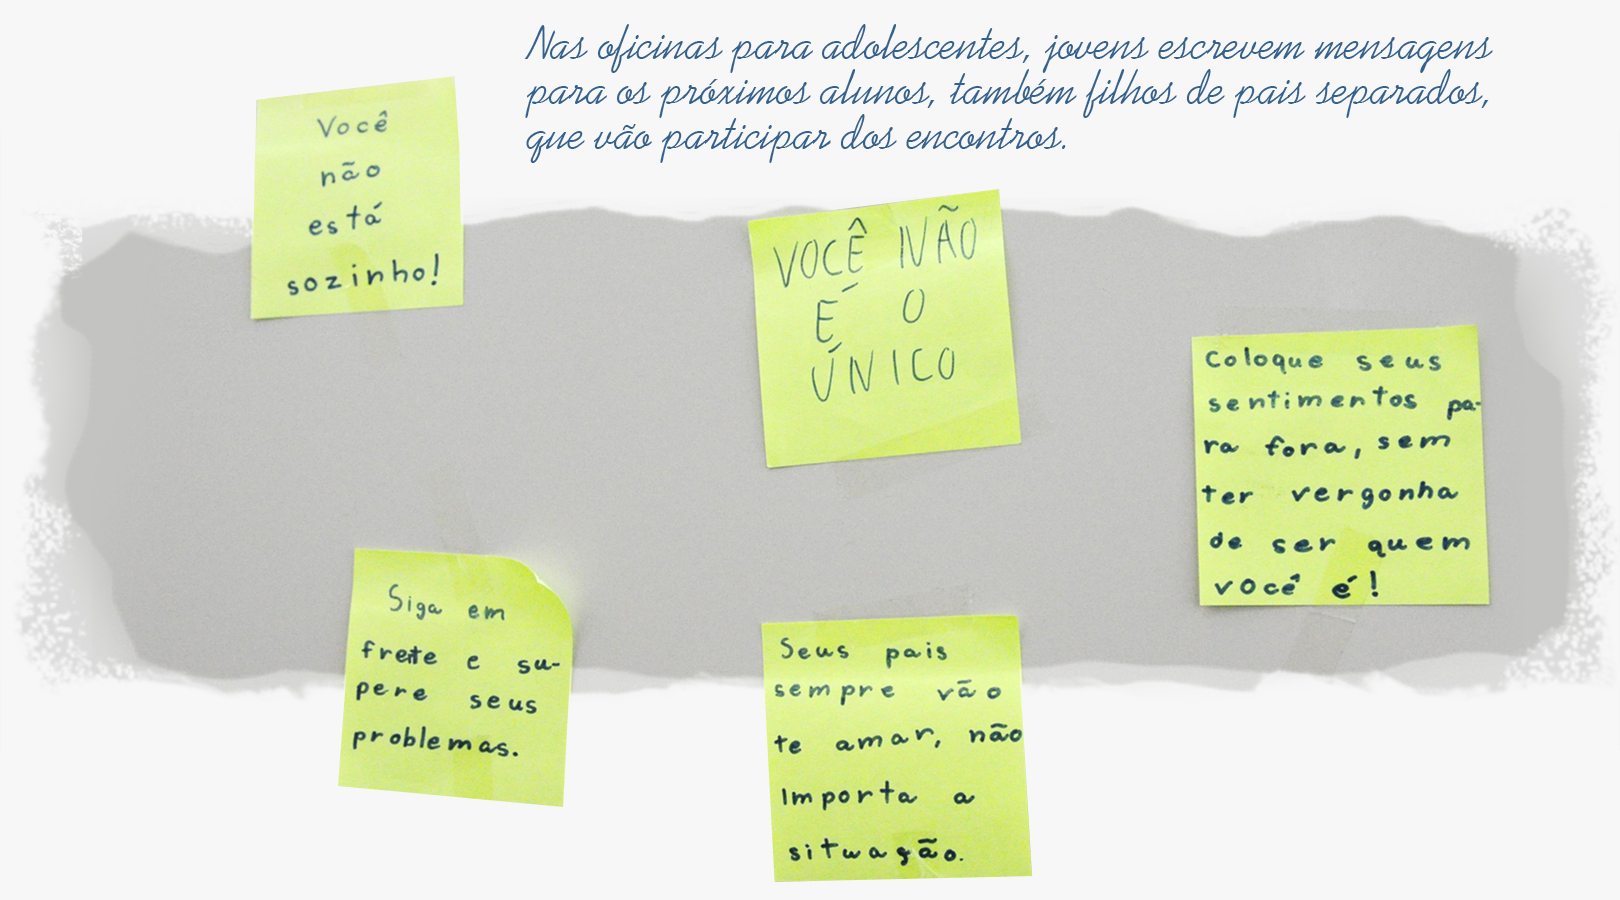 Nas oficinas para adolescentes, jovens escrevem mensagens
para os próximos alunos, também filhos de pais separados,
que vão participar dos encontros.
Você
não
está
sozinho!
VOCÊ NÃO
É O
ÚNICO
Coloque seus
sentimentos pa-
ra fora, sem
ter vergonha
de ser quem
você é!
Siga em
frente e su-
pere seus
problemas.
Seus pais
sempre vão
te amar, não
importa a
situação.